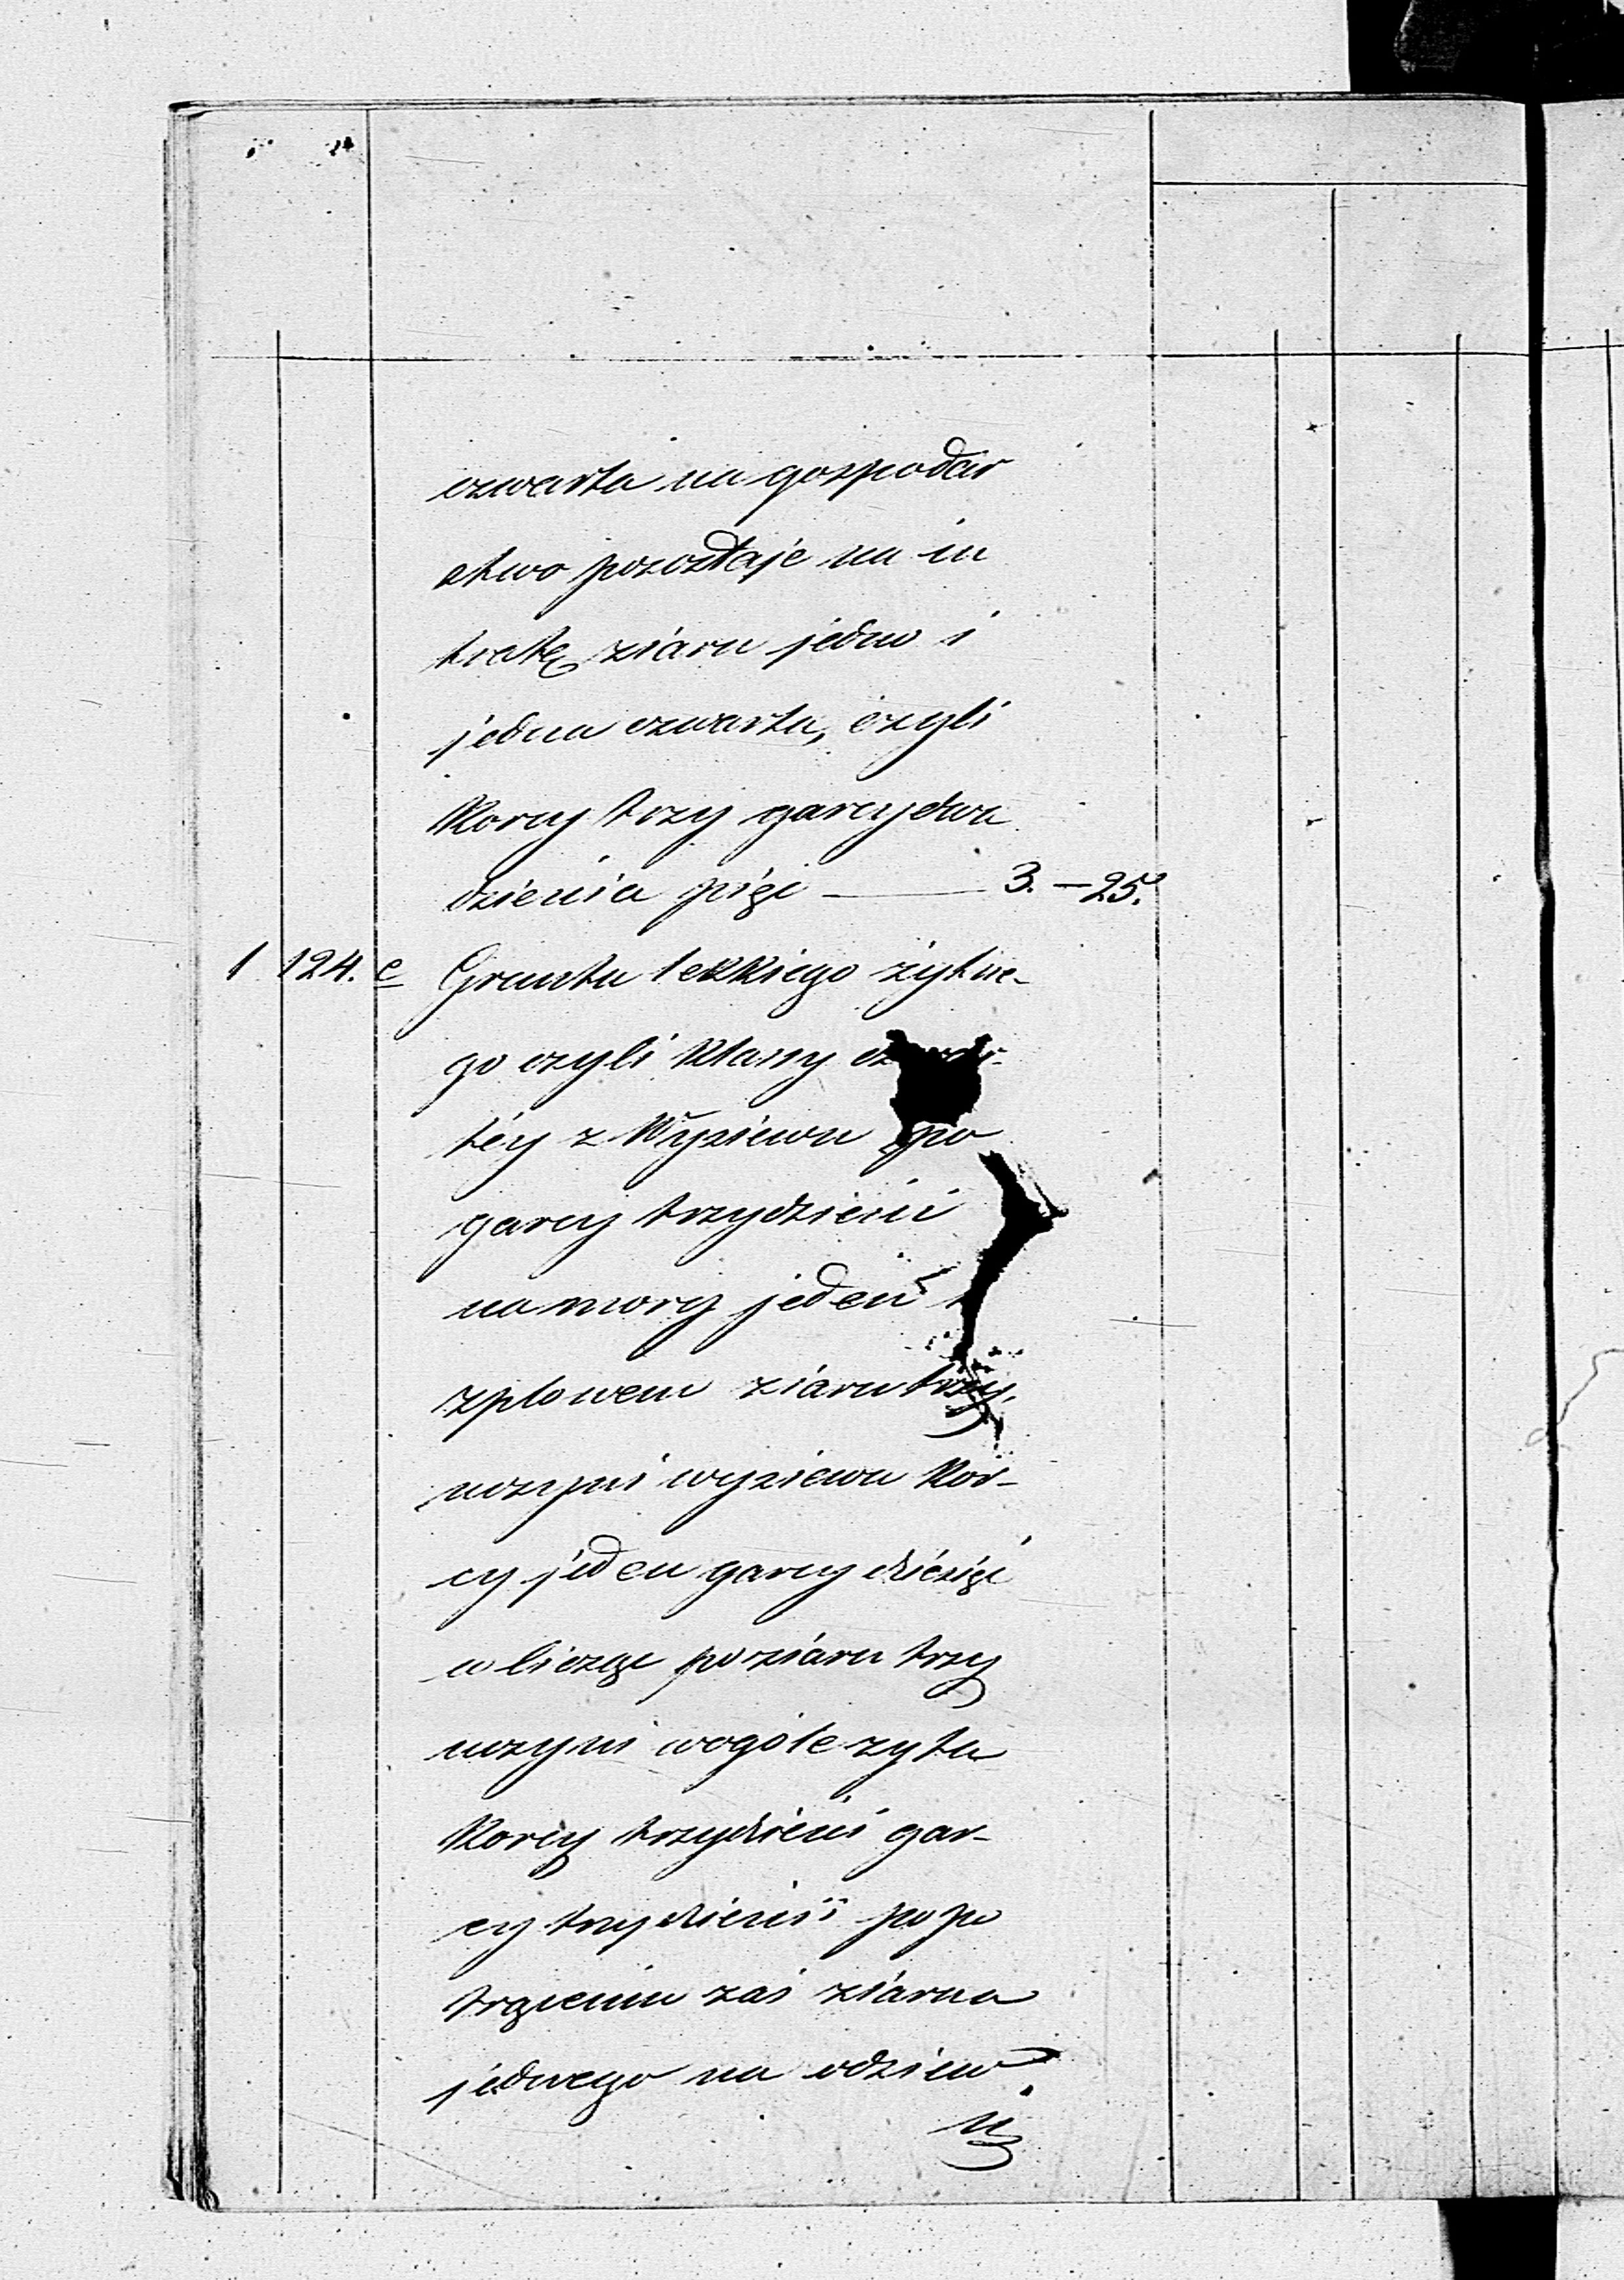 czwarta na gospodar
stwo pozostaje na in
tratę ziarn jedno i
jedna czwarta, czyli
Korcy trzy garcy dwa
dzieścia pięć — 3. — 25.
1 124. c Gruntu lekkiego żytne-
go czyli Klassy czwar-
téy z Wysiewu po
garcy trzydzieści
na morg jeden
z plonem ziarn trzy,
uczyni wysiewu Kor-
cy jeden garcy dziesięć
a licząc po ziarn trzy
uczyni wogóle żyta
Korcy trzydzieści gar-
cy trzydzieści po po
trąceniu zaś ziarna
jednego na odsiew